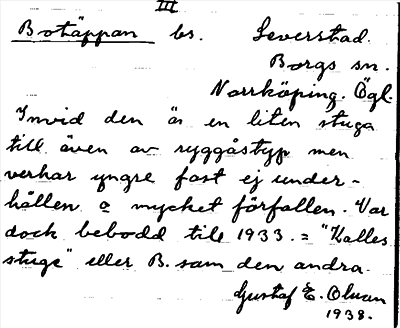 III
Botäppan bs. Leverstad.
Borgs sn.
Norrköping. Ögl.
Invid den är en liten stuga
till även av ryggåstyp men
verkar yngre fast ej under-
hållen o mycket förfallen. Var
dock bebodd till 1933. = "Kalles
stuge" eller B. som den andra.
Gustaf E. Olsson
1938.